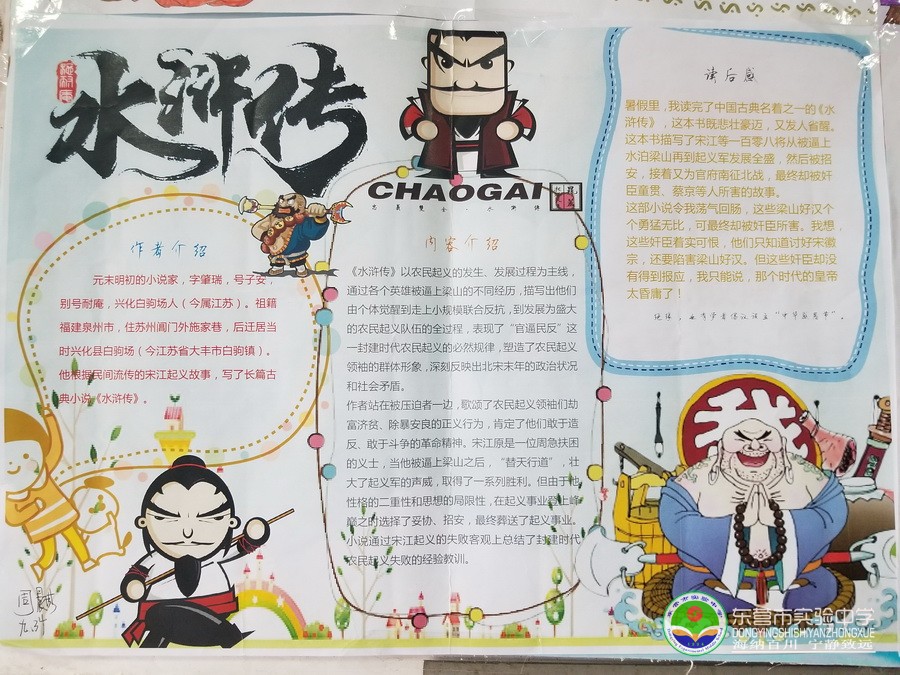 水浒传
施耐庵
CHAOGAI
忠義雙全·水滸傳
作者介绍
元末明初的小说家，字肇瑞，号子安，
别号耐庵，兴化白驹场人（今属江苏）。祖籍
福建泉州市，住苏州阊门外施家巷，后迁居当
时兴化县白驹场（今江苏省大丰市白驹镇）。
他根据民间流传的宋江起义故事，写了长篇古
典小说《水浒传》。
内容介绍
《水浒传》以农民起义的发生、发展过程为主线，
通过各个英雄被逼上梁山的不同经历，描写出他们
由个体觉醒到走上小规模联合反抗，到发展为盛大
的农民起义队伍的全过程，表现了“官逼民反”这
一封建时代农民起义的必然规律，塑造了农民起义
领袖的群体形象，深刻反映出北宋末年的政治状况
和社会矛盾。
作者站在被压迫者一边，歌颂了农民起义领袖们劫
富济贫、除暴安良的正义行为，肯定了他们敢于造
反、敢于斗争的革命精神。宋江原是一位周急扶困
的义士，当他被逼上梁山之后，“替天行道”，壮
大了起义军的声威，取得了一系列胜利。但由于他
性格的二重性和思想的局限性，在起义事业登上峰
巅之时选择了妥协、招安，最终葬送了起义事业。
小说通过宋江起义的失败客观上总结了封建时代
农民起义失败的经验教训。
读后感
暑假里，我读完了中国古典名着之一的《水
浒传》，这本书既悲壮豪迈，又发人省醒。
这本书描写了宋江等一百零八将从被逼上
水泊梁山再到起义军发展全盛，然后被招
安，接着又为官府南征北战，最终却被奸
臣童贯、蔡京等人所害的故事。
这部小说令我荡气回肠，这些梁山好汉个
个勇猛无比，可最终却被奸臣所害。我想，
这些奸臣着实可恨，他们只知道讨好宋徽
宗，还要陷害梁山好汉。但这些奸臣却没
有得到报应，我只能说，那个时代的皇帝
太昏庸了！
我
九.34
东营市实验中学
DONGYINGSHISHIYANZHONGXUE
海纳百川 宁静致远